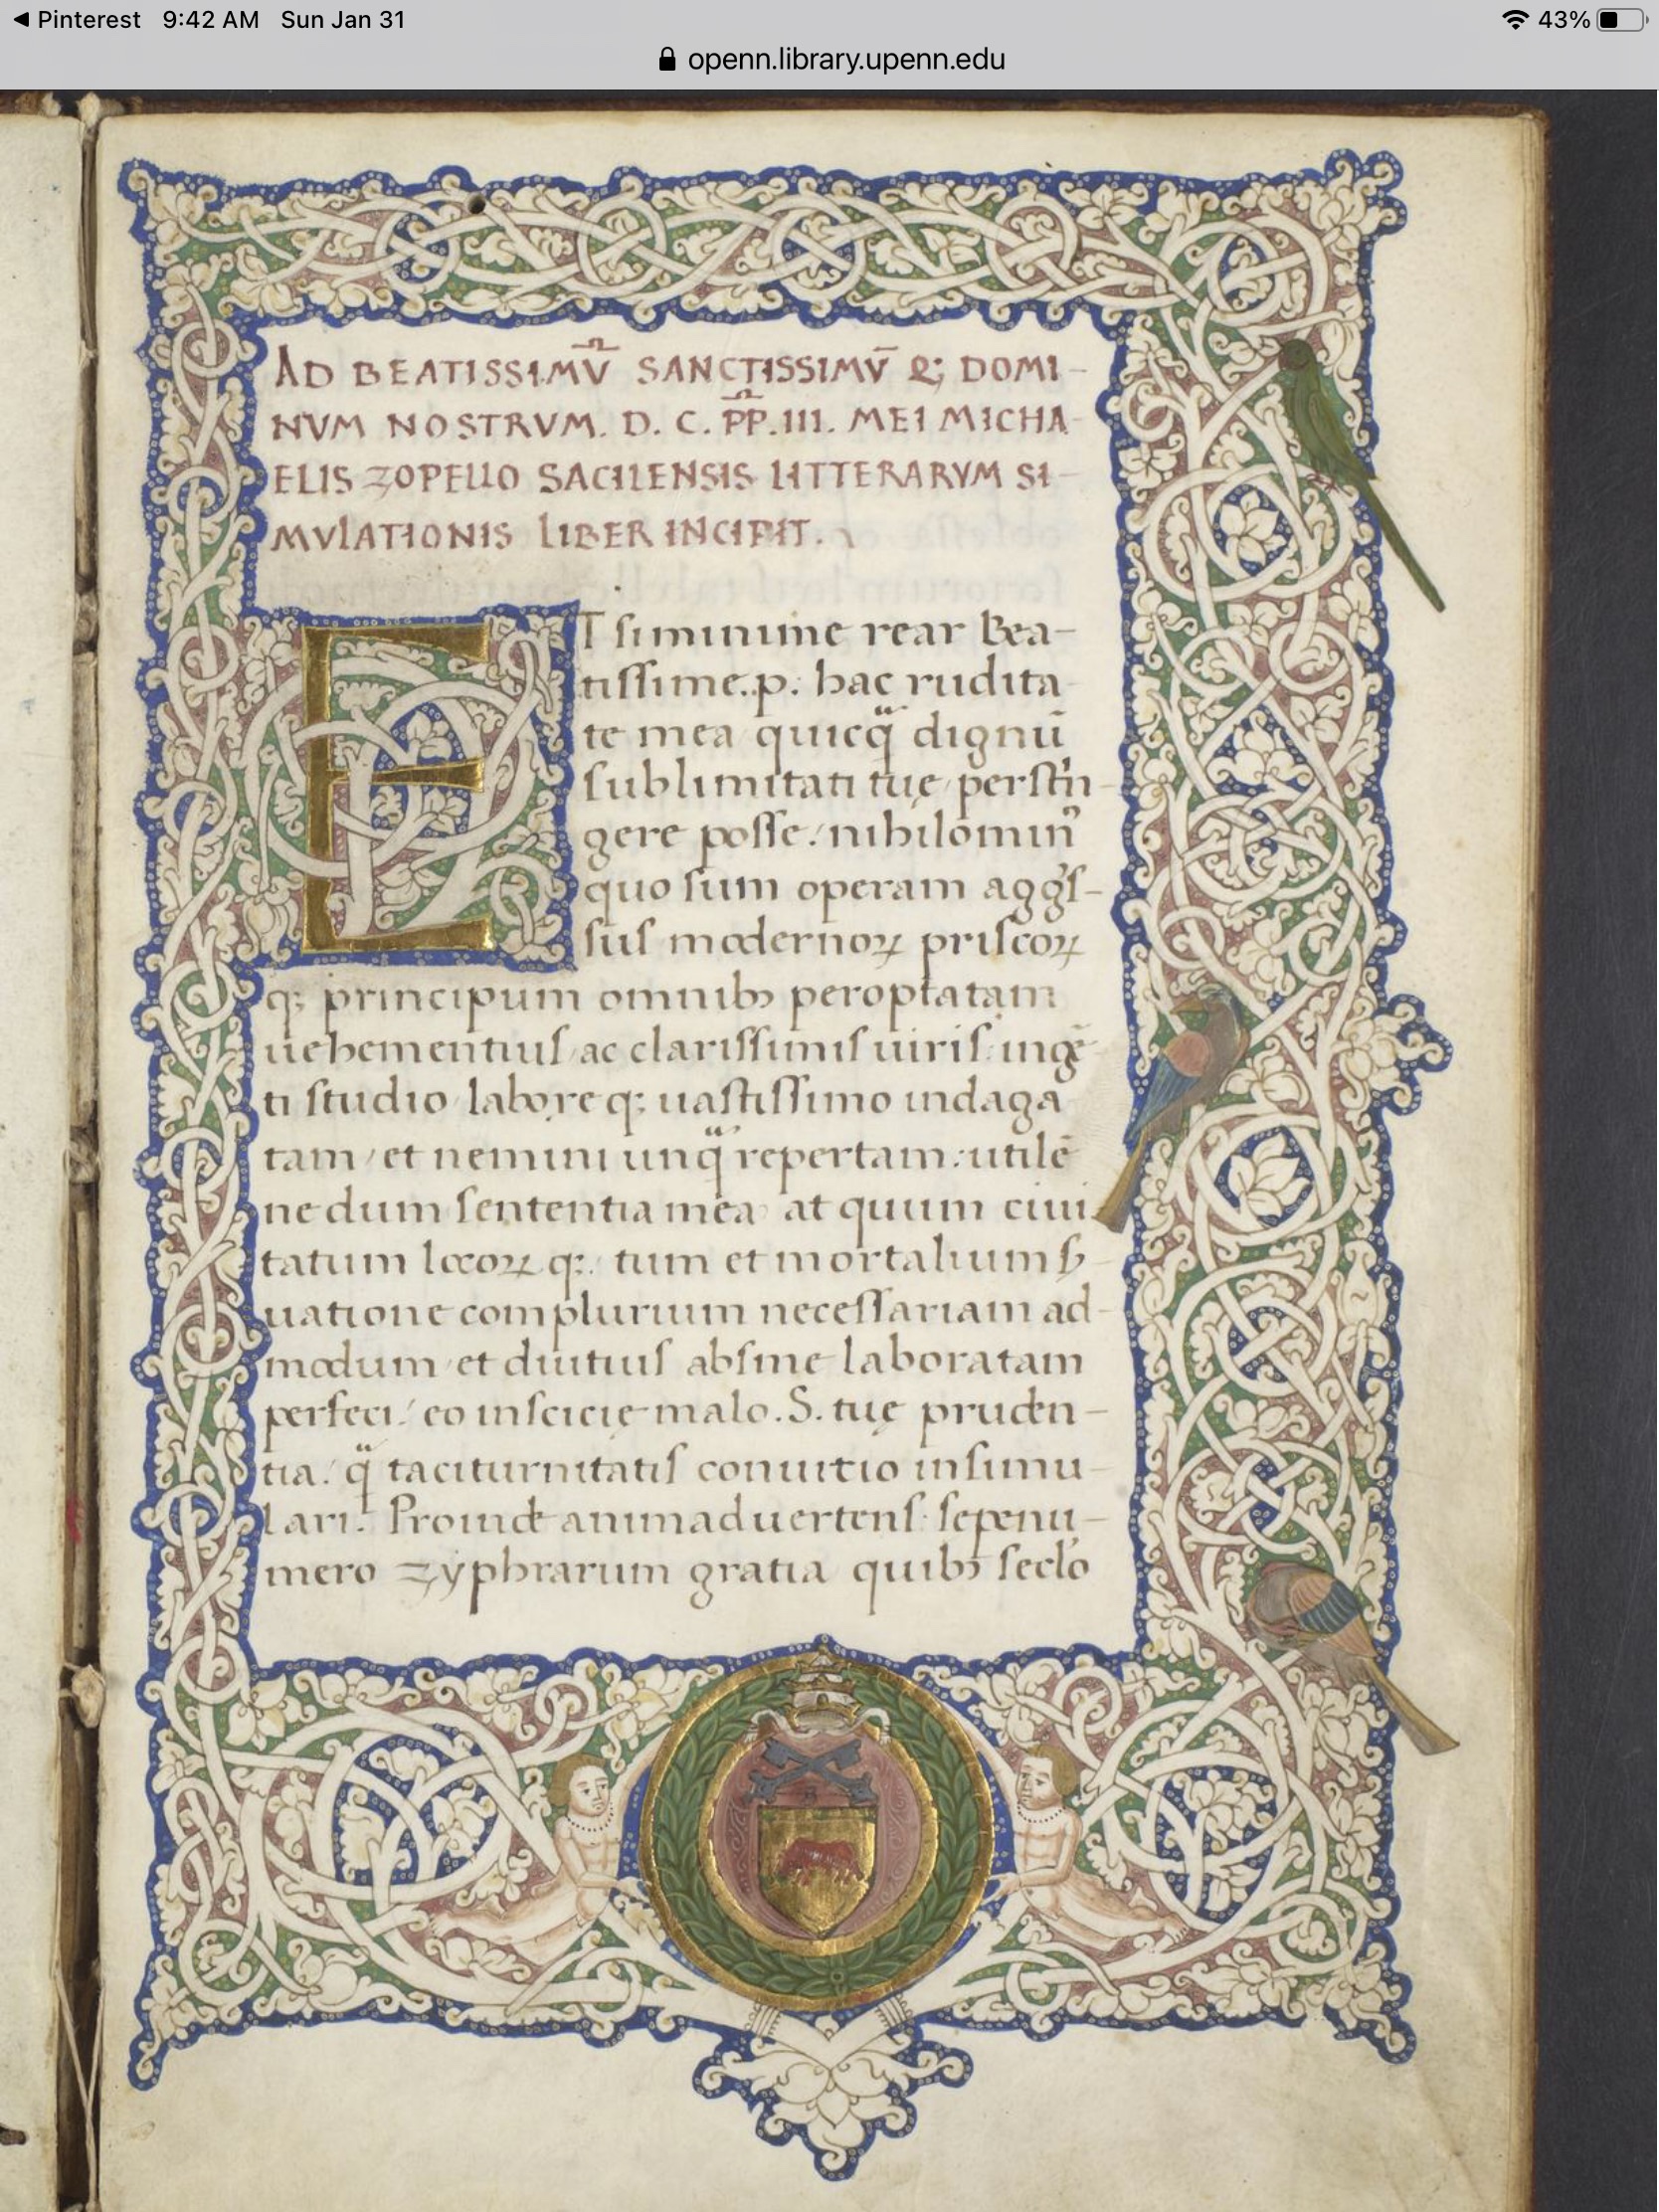 Pinterest 9:42 AM Sun Jan 31 43%
openn.library.upenn.edu
AD BEATISSIMV̄ SANCTISSIMV̄ Q; DOMI-
NVM NOSTRVM. D. C. P̄P̄.III. MEI MICHA-
ELIS ZOPELLO SACILENSIS LITTERARVM SI-
MVLATIONIS LIBER INCIPIT.
ET si minime rear Bea-
tissime.p. hac rudita
te mea quicq̃ dignū
sublimitati tuę perstrin-
gere posse: nihilominꝰ
quo sum operam aggres-
sus modernoꝝ priscoꝝ
q; principum omnibꝫ peroptatam
uehementius ac clarissimis uiris: ingē
ti studio labore q; uastissimo indaga
tam et nemini unq̃ repertam: utilē
ne dum sententia mea at quum ciui
tatum locoꝝ q; tum et mortalium
uatione complurium necessariam ad-
modum et diutius absme laboratam
perfeci: eo inscicię malo. S. tuę pruden-
tia: q̃ taciturnitatis conuitio insimu-
lari. Proinde animaduertens sepenu-
mero zyphrarum gratia quibꝫ seclo